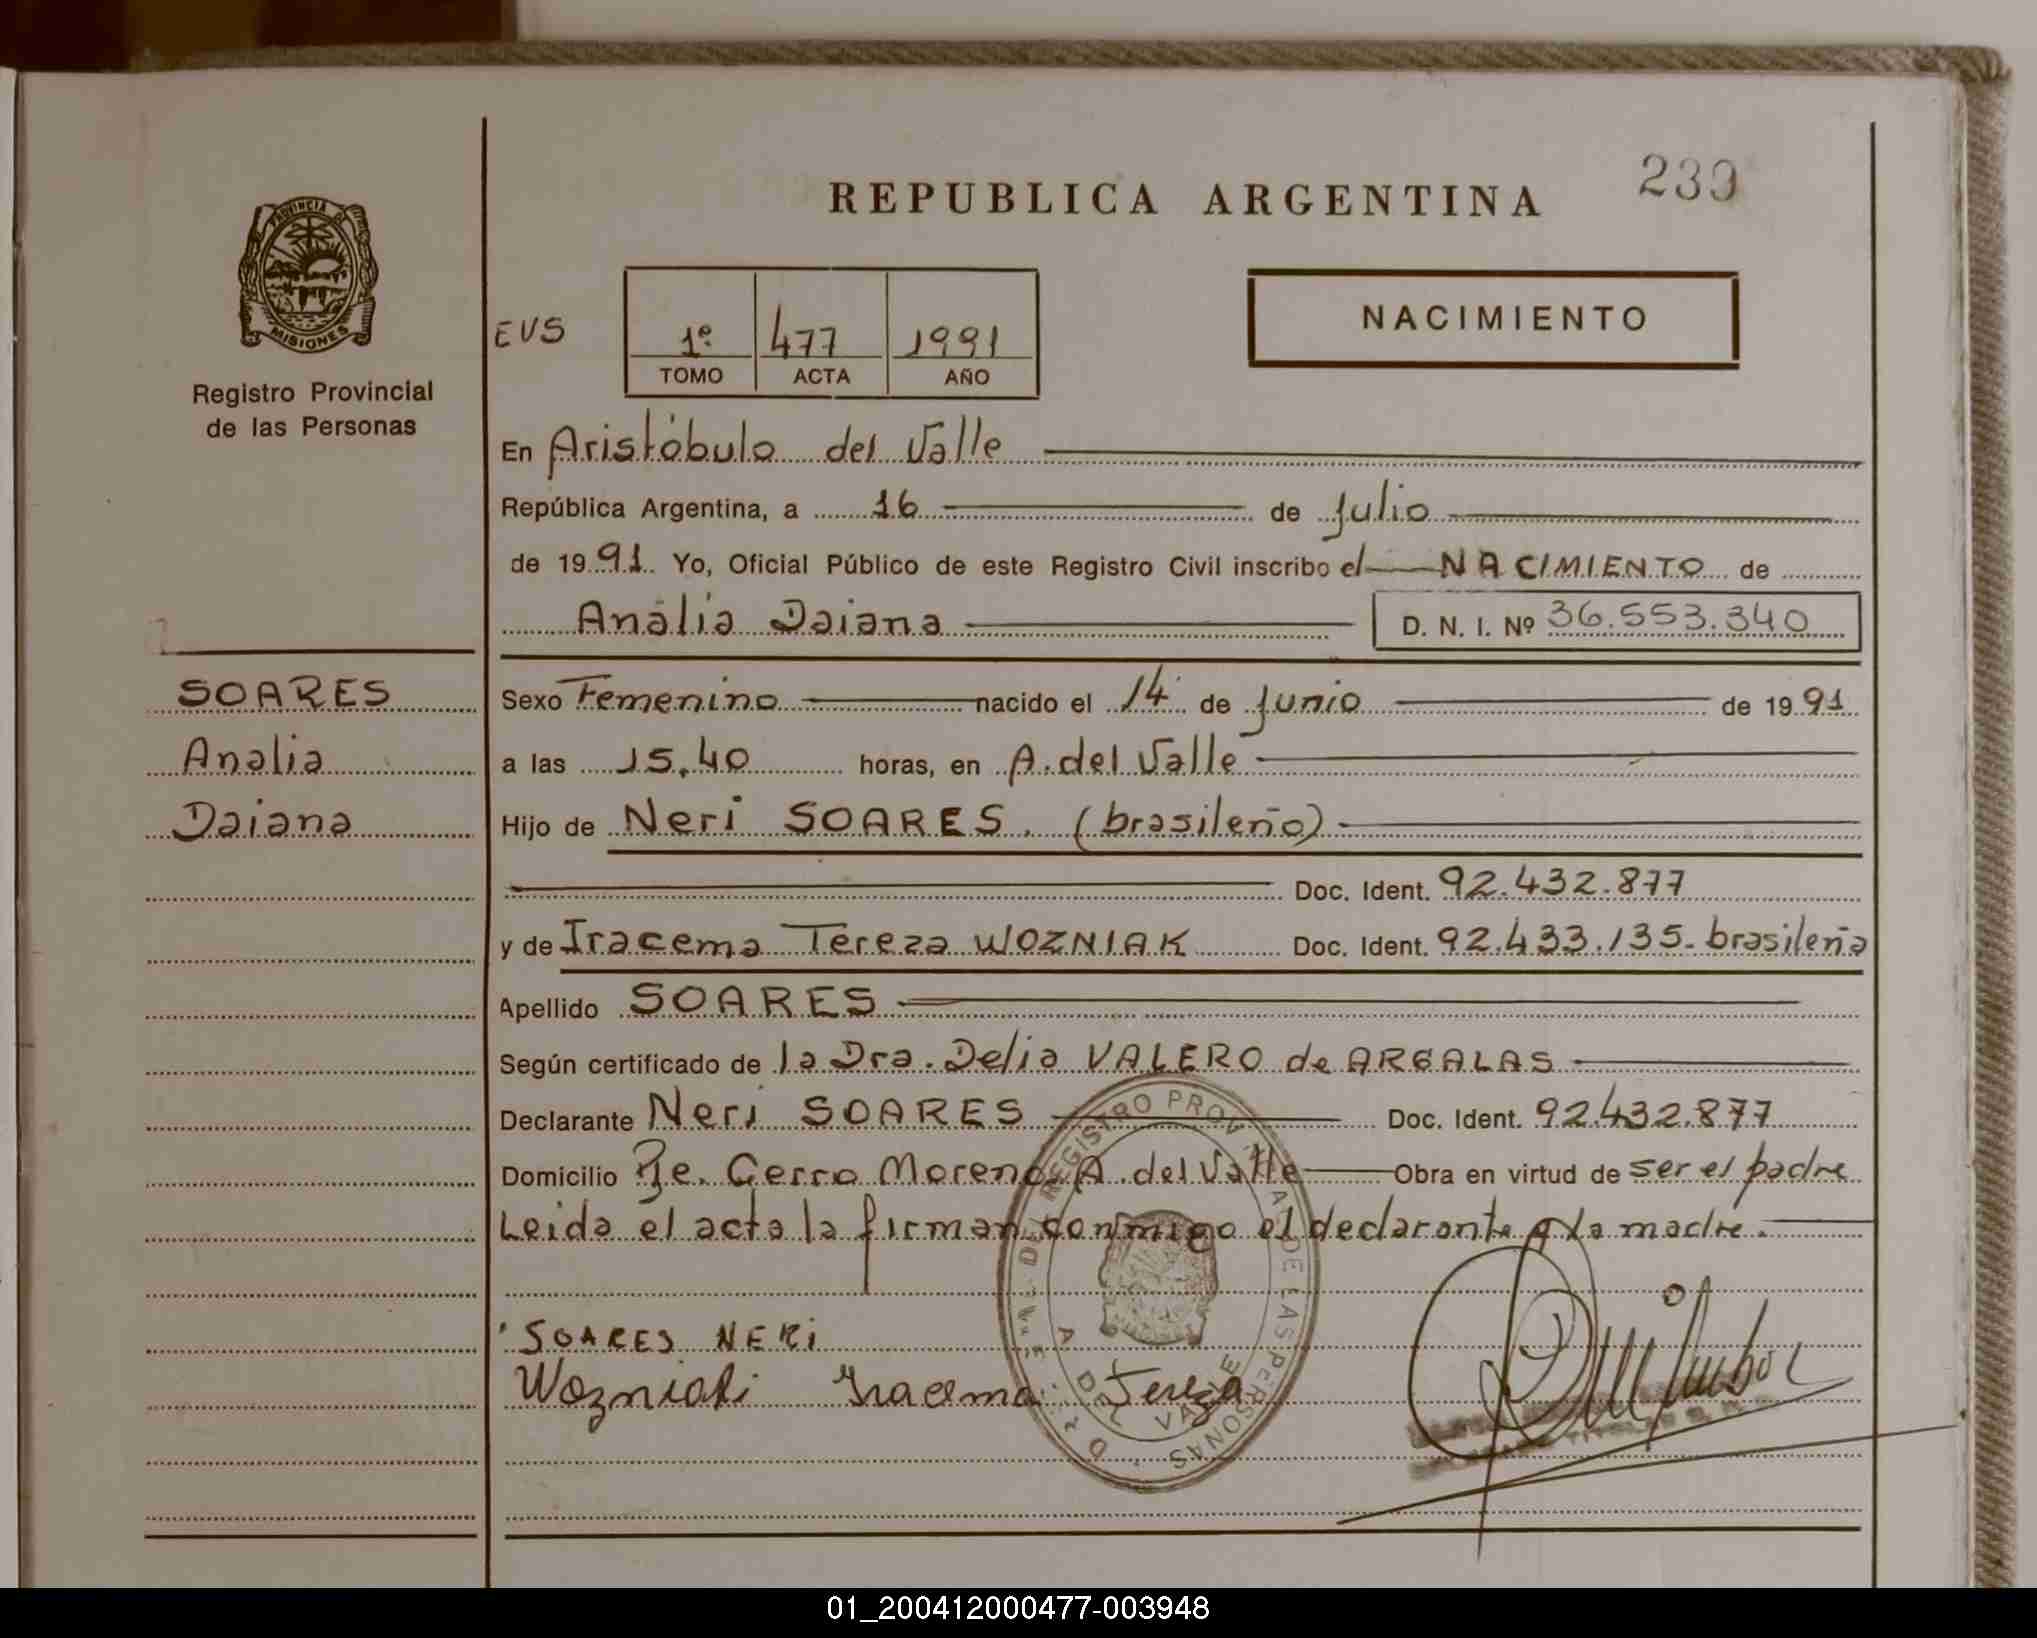 REPUBLICA ARGENTINA
239
PROVINCIA D
MISIONES
Registro Provincial
de las Personas
EVS
1º 477 1991
TOMO ACTA AÑO
NACIMIENTO
En Aristóbulo del Valle
República Argentina, a 16 de Julio
de 1991 Yo, Oficial Público de este Registro Civil inscribo el NACIMIENTO de
Analia Daiana D. N. I. Nº 36.553.340
SOARES
Analia
Daiana
Sexo Femenino nacido el 14 de Junio de 1991
a las 15,40 horas, en A. del Valle
Hijo de Neri SOARES. (brasileño)
Doc. Ident. 92.432.877
y de Iracema Tereza WOZNIAK Doc. Ident. 92.433.135- brasileña
Apellido SOARES
Según certificado de la Dra. Delia VALERO de ARGALAS
Declarante Neri SOARES Doc. Ident. 92.432.877
Domicilio Pje. Cerro Moreno A. del Valle Obra en virtud de ser el padre
Leida el acta la firman conmigo el declarante y la madre.
SOARES NERi
Wozniaki Iracema Tereza
REGISTRO PROV DE LAS PERSONAS
A DEL VALLE
01_200412000477-003948